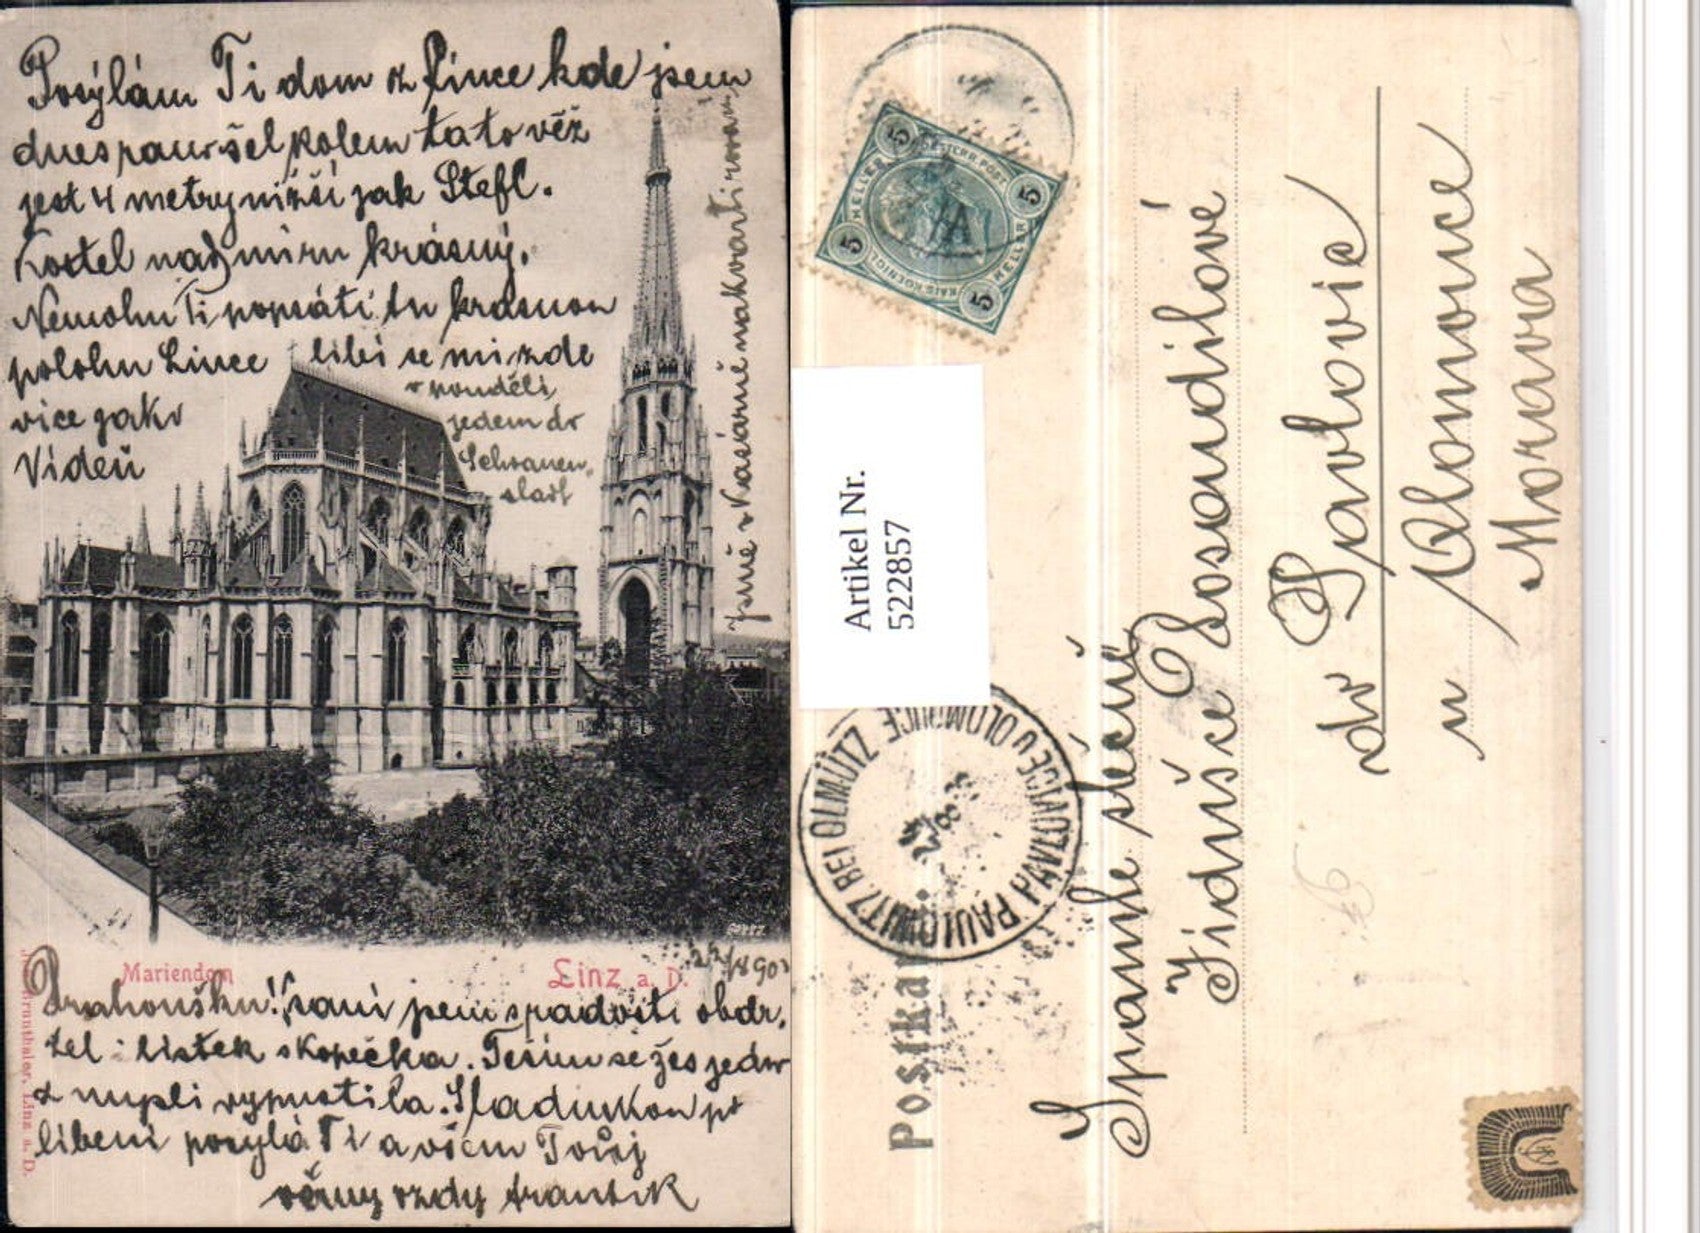 Posýlám Ti dom z Lince kde jsem
dnes pauršel kolem tato věž
jest 4 metry nižší jak Štefl.
Kostel nadmíru krásný.
Nemohu Ti popsáti tu krásnou
polohu Lince líbí se mi zde
více jako
Vídeň
v pondělí
jedem do
Schwanen-
stadt
Jsmě v Kasárně nakvartirovaní
Mariendom
Linz a. D.
22/8 903
Drahoušku! psaní jsem s radostí obdr.
žel i lístek s Kopečka. Těším se žes jedno
z mysli vypustila. Sladinkou po
líbení posýlá Ti a všem Tvůj
věrný vždy Frantík
Linz a. D.
5 5 5 5
HELLER
HELLER
KAIS. KOENIGL.
OESTERR. POST
Artikel Nr.
5228857
PAULOWITZ BEI OLMÜTZ
PAVLOVICE U OLOMOUCE
24 8
Postkar
Spanilé slečně
Jiduišce Losoudilové
v Pavlovic
u Olomouce
Morava